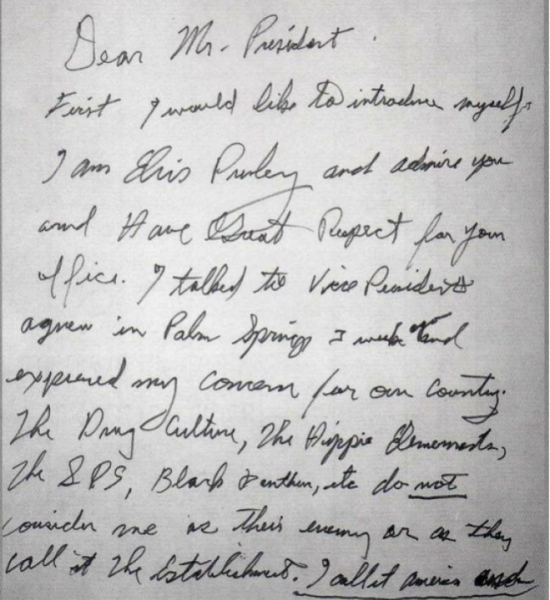 Dear Mr. President.
First I would like to introduce myself.
I am Elvis Presley and admire you
and Have Great Respect for your
office. I talked to Vice President
agnew in Palm Springs 3 weeks and
expressed my concern for our country.
The Drug Culture, The Hippie Elements,
The SDS, Black Panthers, etc do not
consider me as their enemy or as they
call it The Establishment. I call it america